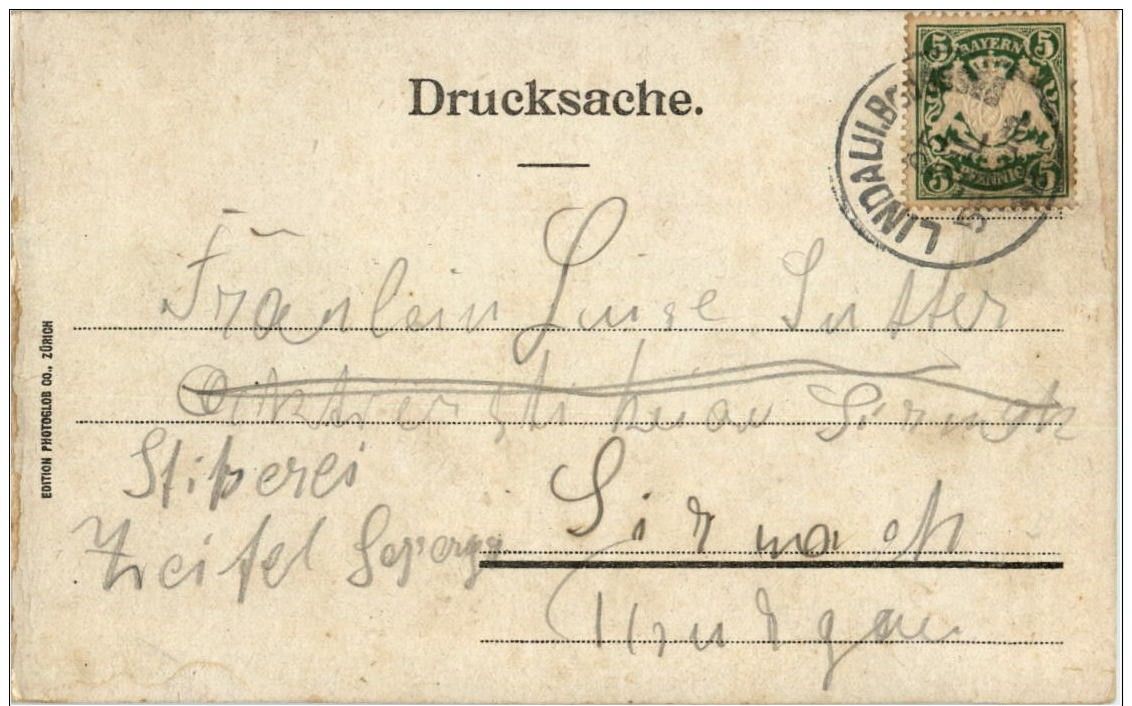 Drucksache.
5 BAYERN 5
5 PFENNIG 5
LINDAU I. B.
Fräulein Luise Sutter
Sirnach
Stikerei
Sirnach
Thurgau
EDITION PHOTOGLOB CO., ZÜRICH